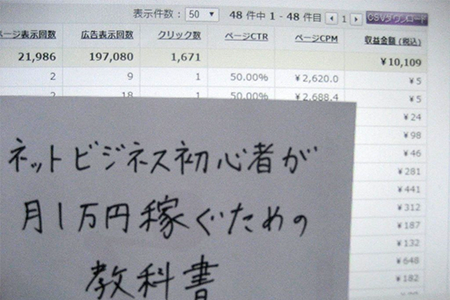 表示件数： 50 48 件中 1 - 48 件目 1 CSVダウンロード
ページ表示回数 広告表示回数 クリック数 ページCTR ページCPM 収益金額 (税込)
21,986 197,080 1,671 ¥10,109
2 9 1 50.00% ¥2,620.0 ¥5
2 18 1 50.00% ¥2,688.4 ¥5
¥24
¥98
¥46
¥281
¥441
¥312
¥187
¥132
¥648
¥182
ネットビジネス初心者が
月1万円稼ぐための
教科書